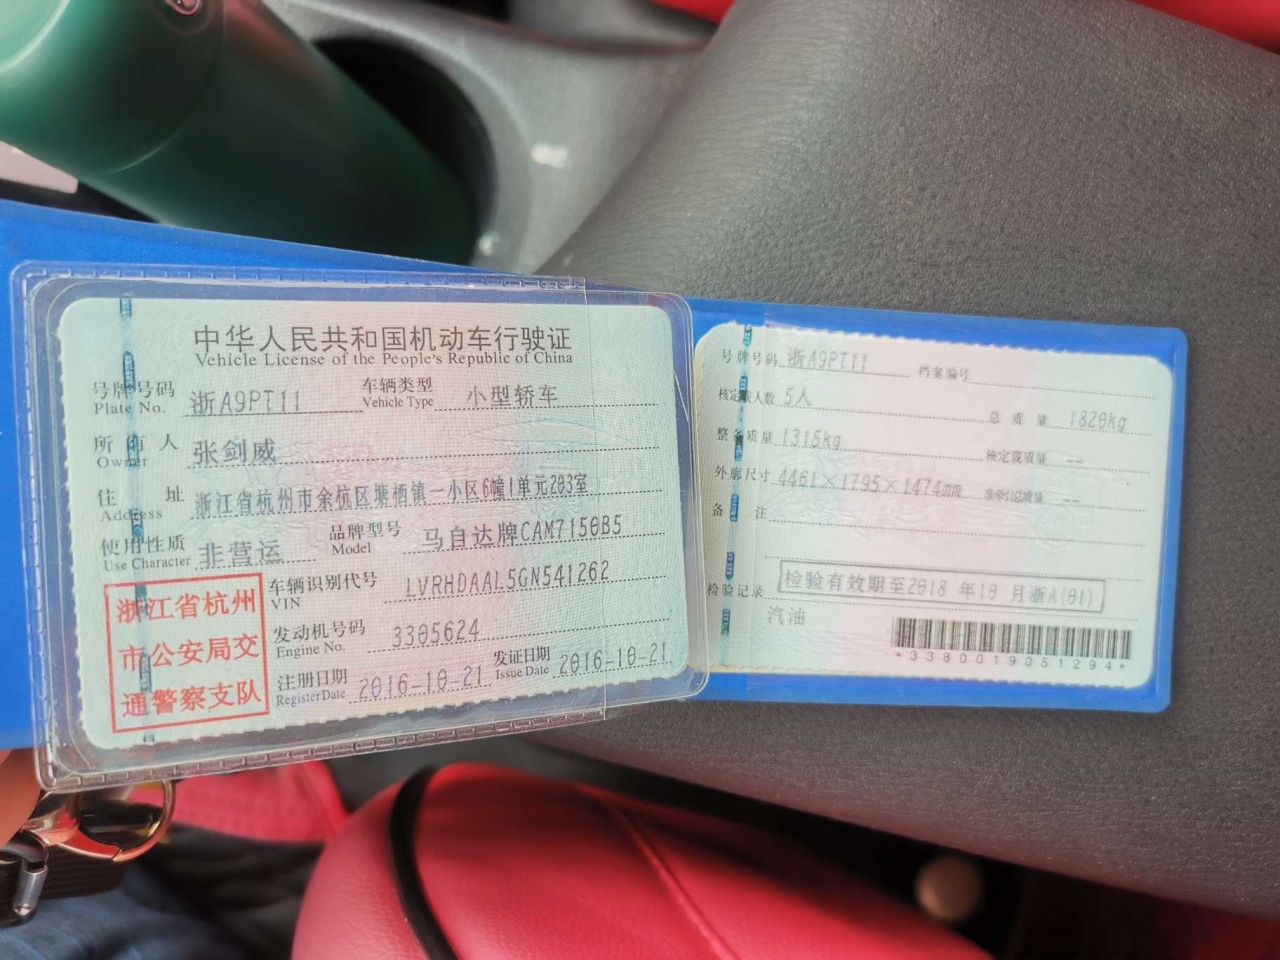 中华人民共和国机动车行驶证
Vehicle License of the People's Republic of China
号牌号码 浙A9PT11 车辆类型 小型轿车
Plate No. Vehicle Type
所有人 张剑威
Owner
住址 浙江省杭州市余杭区塘栖镇一小区6幢1单元203室
Address
使用性质 非营运 品牌型号 马自达牌CAM7150B5
Use Character Model
浙江省杭州
市公安局交
通警察支队
车辆识别代号 LVRHDAAL5GN541262
VIN
发动机号码 3305624
Engine No.
注册日期 2016-10-21 发证日期 2016-10-21
Register Date Issue Date
号牌号码 浙A9PT11 档案编号
核定载人数 5人 总质量 1820kg
整备质量 1315kg 核定载质量 --
外廓尺寸 4461×1795×1474mm 准牵引总质量 --
备注
检验记录 检验有效期至2018年10月浙A(01)
汽油
*3380019051294*